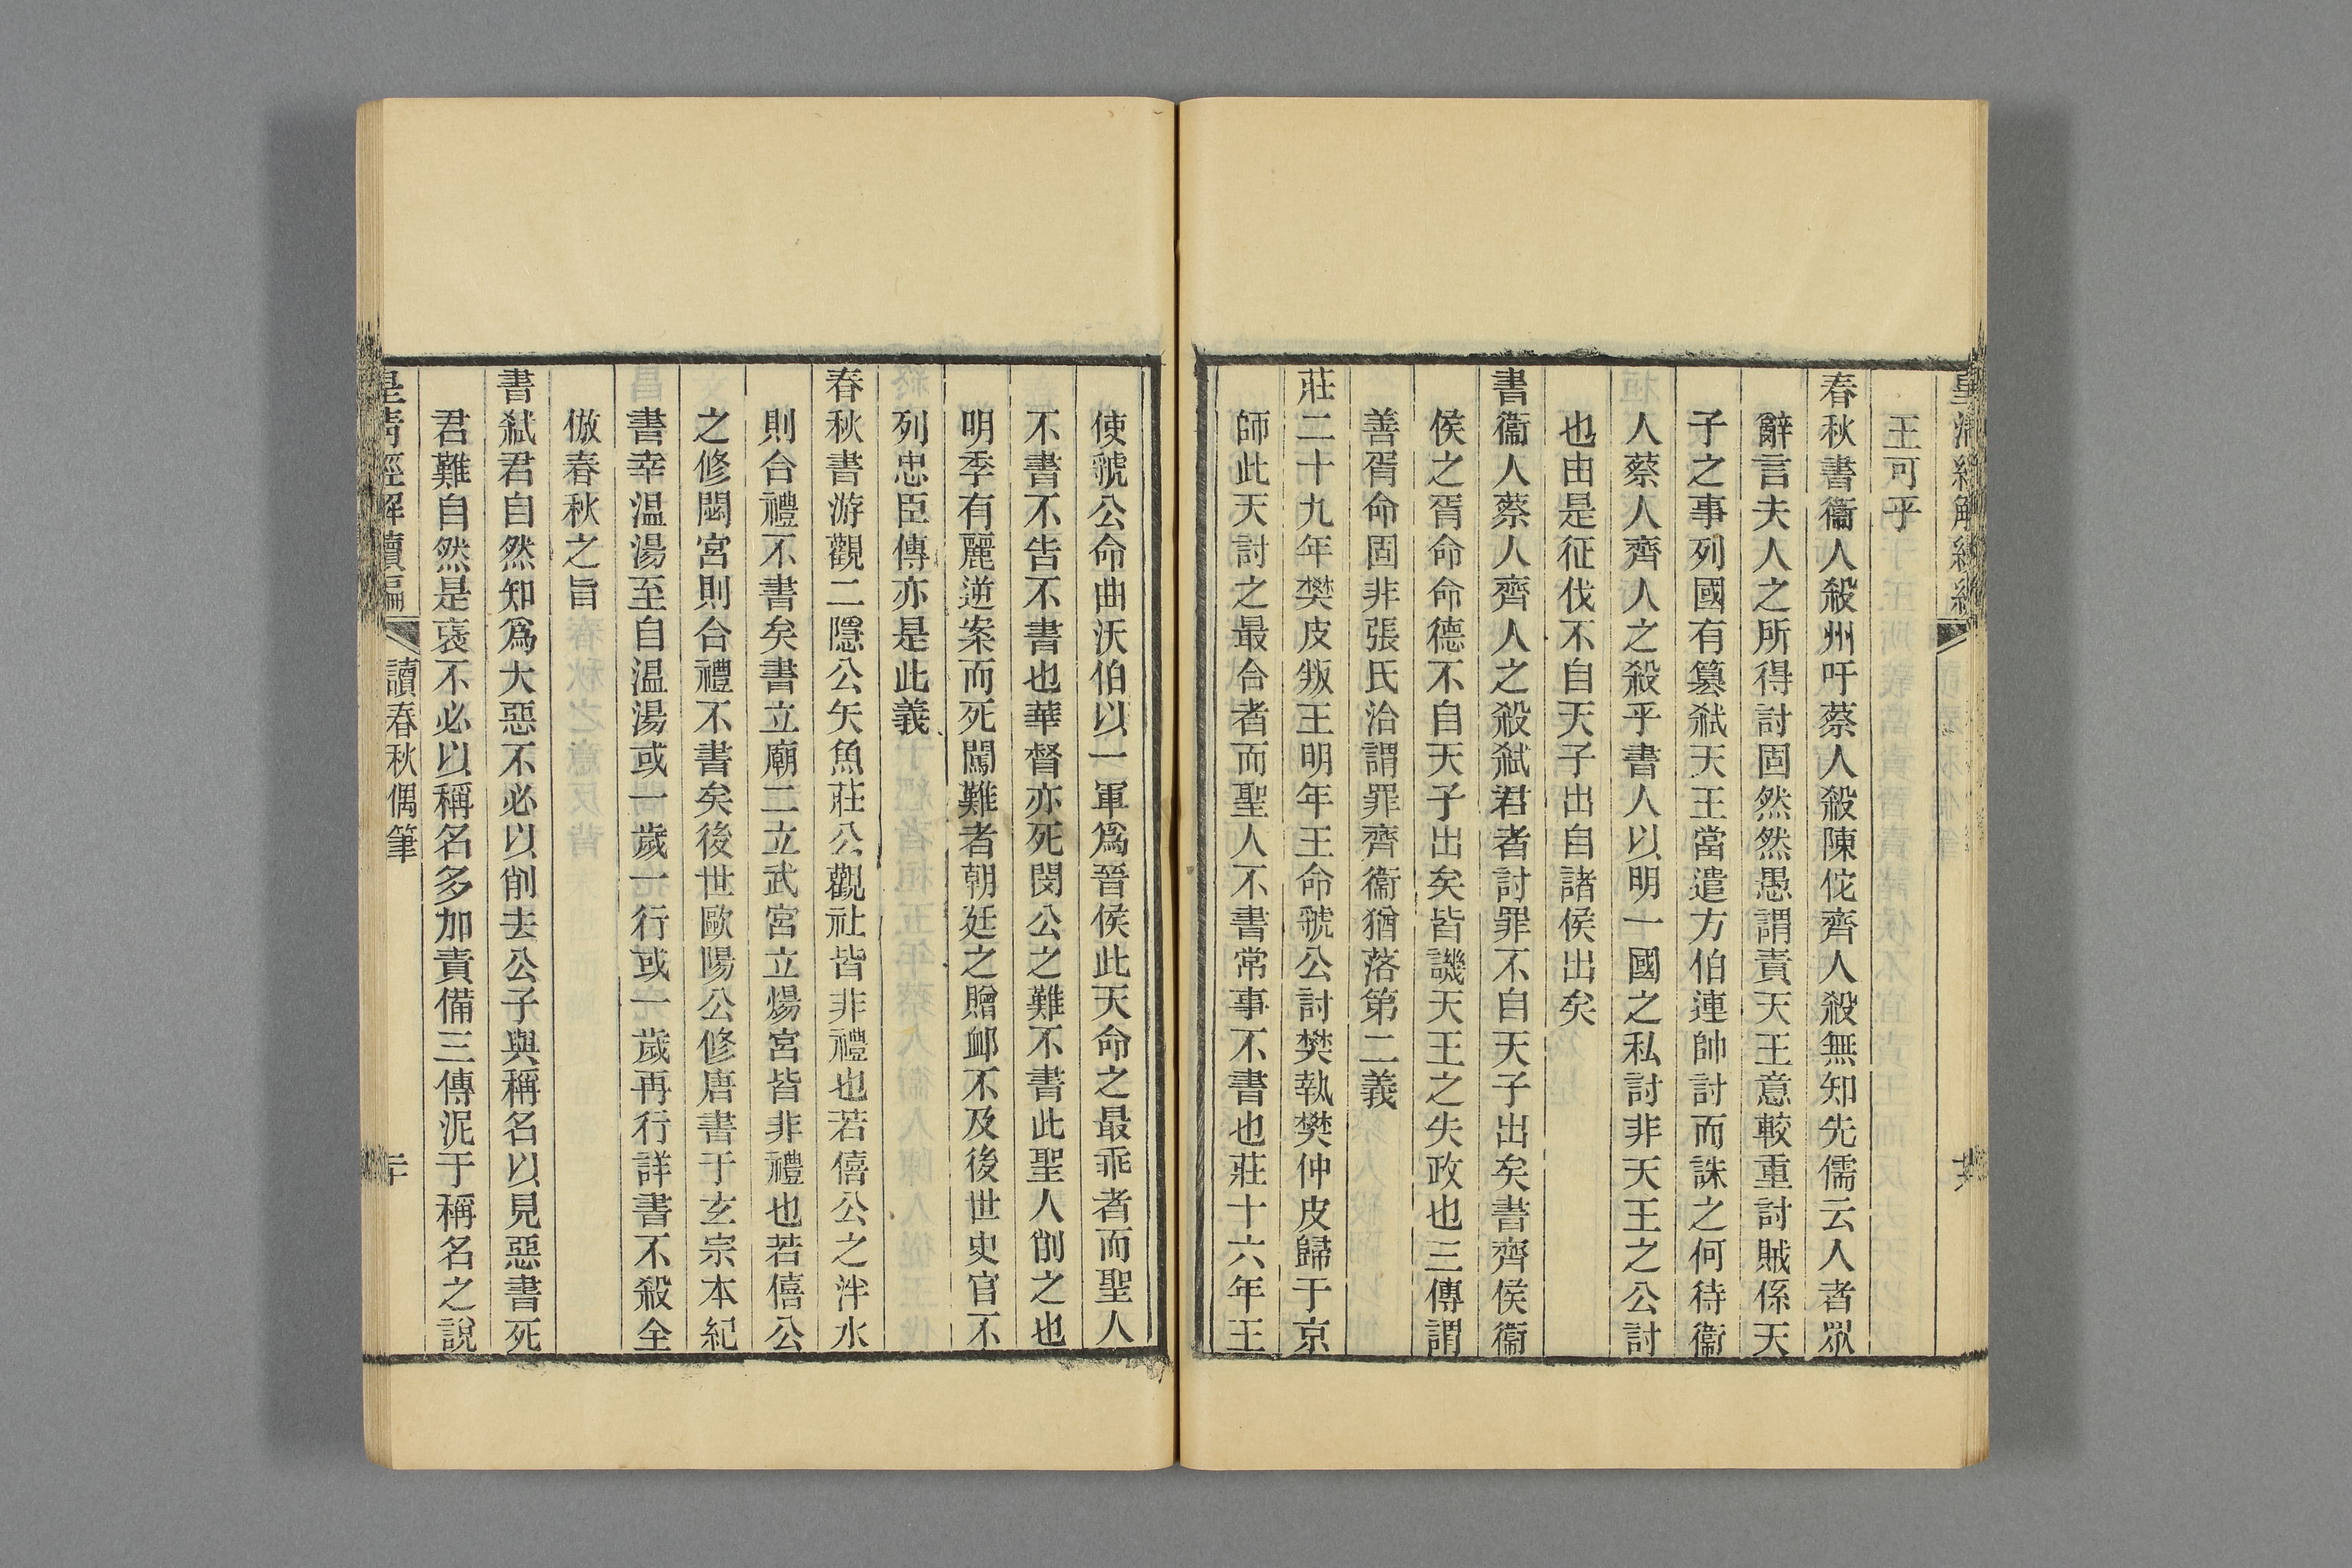 王可乎
春秋書衞人殺州吁蔡人殺陳佗齊人殺無知先儒云人者眾
辭言夫人之所得討固然然愚謂責天王意較重討賊係天
子之事列國有篡弒天王當遣方伯連帥討而誅之何待衞
人蔡人齊人之殺乎書人以明一國之私討非天王之公討
也由是征伐不自天子出自諸侯出矣
書衞人蔡人齊人之殺弒君者討罪不自天子出矣書齊侯衞
侯之胥命命德不自天子出矣皆譏天王之失政也三傳謂
善胥命固非張氏洽謂罪齊衞猶落第二義
莊二十九年樊皮叛王明年王命虢公討樊執樊仲皮歸于京
師此天討之最合者而聖人不書常事不書也莊十六年王
使虢公命曲沃伯以一軍爲晉侯此天命之最乖者而聖人
不書不告不書也華督亦死閔公之難不書此聖人削之也
明季有麗逆案而死闖難者朝廷之贈卹不及後世史官不
列忠臣傳亦是此義
春秋書游觀二隱公矢魚莊公觀社皆非禮也若僖公之泮水
則合禮不書矣書立廟二立武宮立煬宮皆非禮也若僖公
之修閟宮則合禮不書矣後世歐陽公修唐書于玄宗本紀
書幸温湯至自温湯或一歲一行或一歲再行詳書不殺全
倣春秋之旨
書弒君自然知爲大惡不必以削去公子與稱名以見惡書死
君難自然是褒不必以稱名多加責備三傳泥于稱名之說
皇清經解續編
讀春秋偶筆